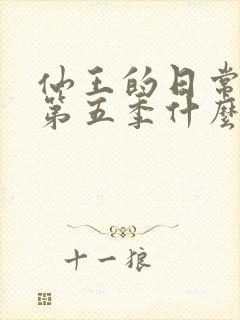 仙王的日常
第五季什麼
十一狼